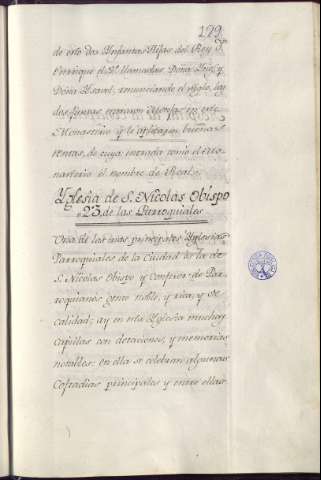 129
de esto dos Ynfantas Hijas del Rey Dn
Enrrique el 2º llamadas Doña Ynes, y
Doña Ysavel, renunciando el siglo, las
dos entraron Monjas en este
Monasterio y le aplicaron buenas
rentas, de cuya entrada tomó el Mo-
nasterio el nombre de Real.
Yglesia de S. Nicolas Obispo
23, de las Parroquiales
Una de las mas principales Yglesias
Parroquiales de la Ciudad es la de
S. Nicolas Obispo y Confesor de Par-
roquianos gente noble, y rica, y de
calidad; ay en esta Yglesia muchas
capillas con dotaciones, y memorias
notables: en ella se celebran algunas
Cofradias principales y entre ellas